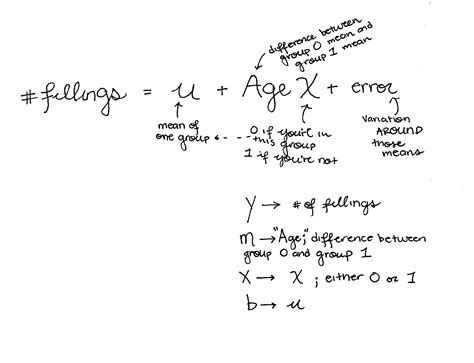 difference between
group 0 mean and
group 1 mean
#fillings = u + Age X + error
mean of
one group
0 if you're in
this group
1 if you're not
variation
AROUND
those
means
y → # of fillings
m → "Age;" difference between
group 0 and group 1
X → X ; either 0 or 1
b → u